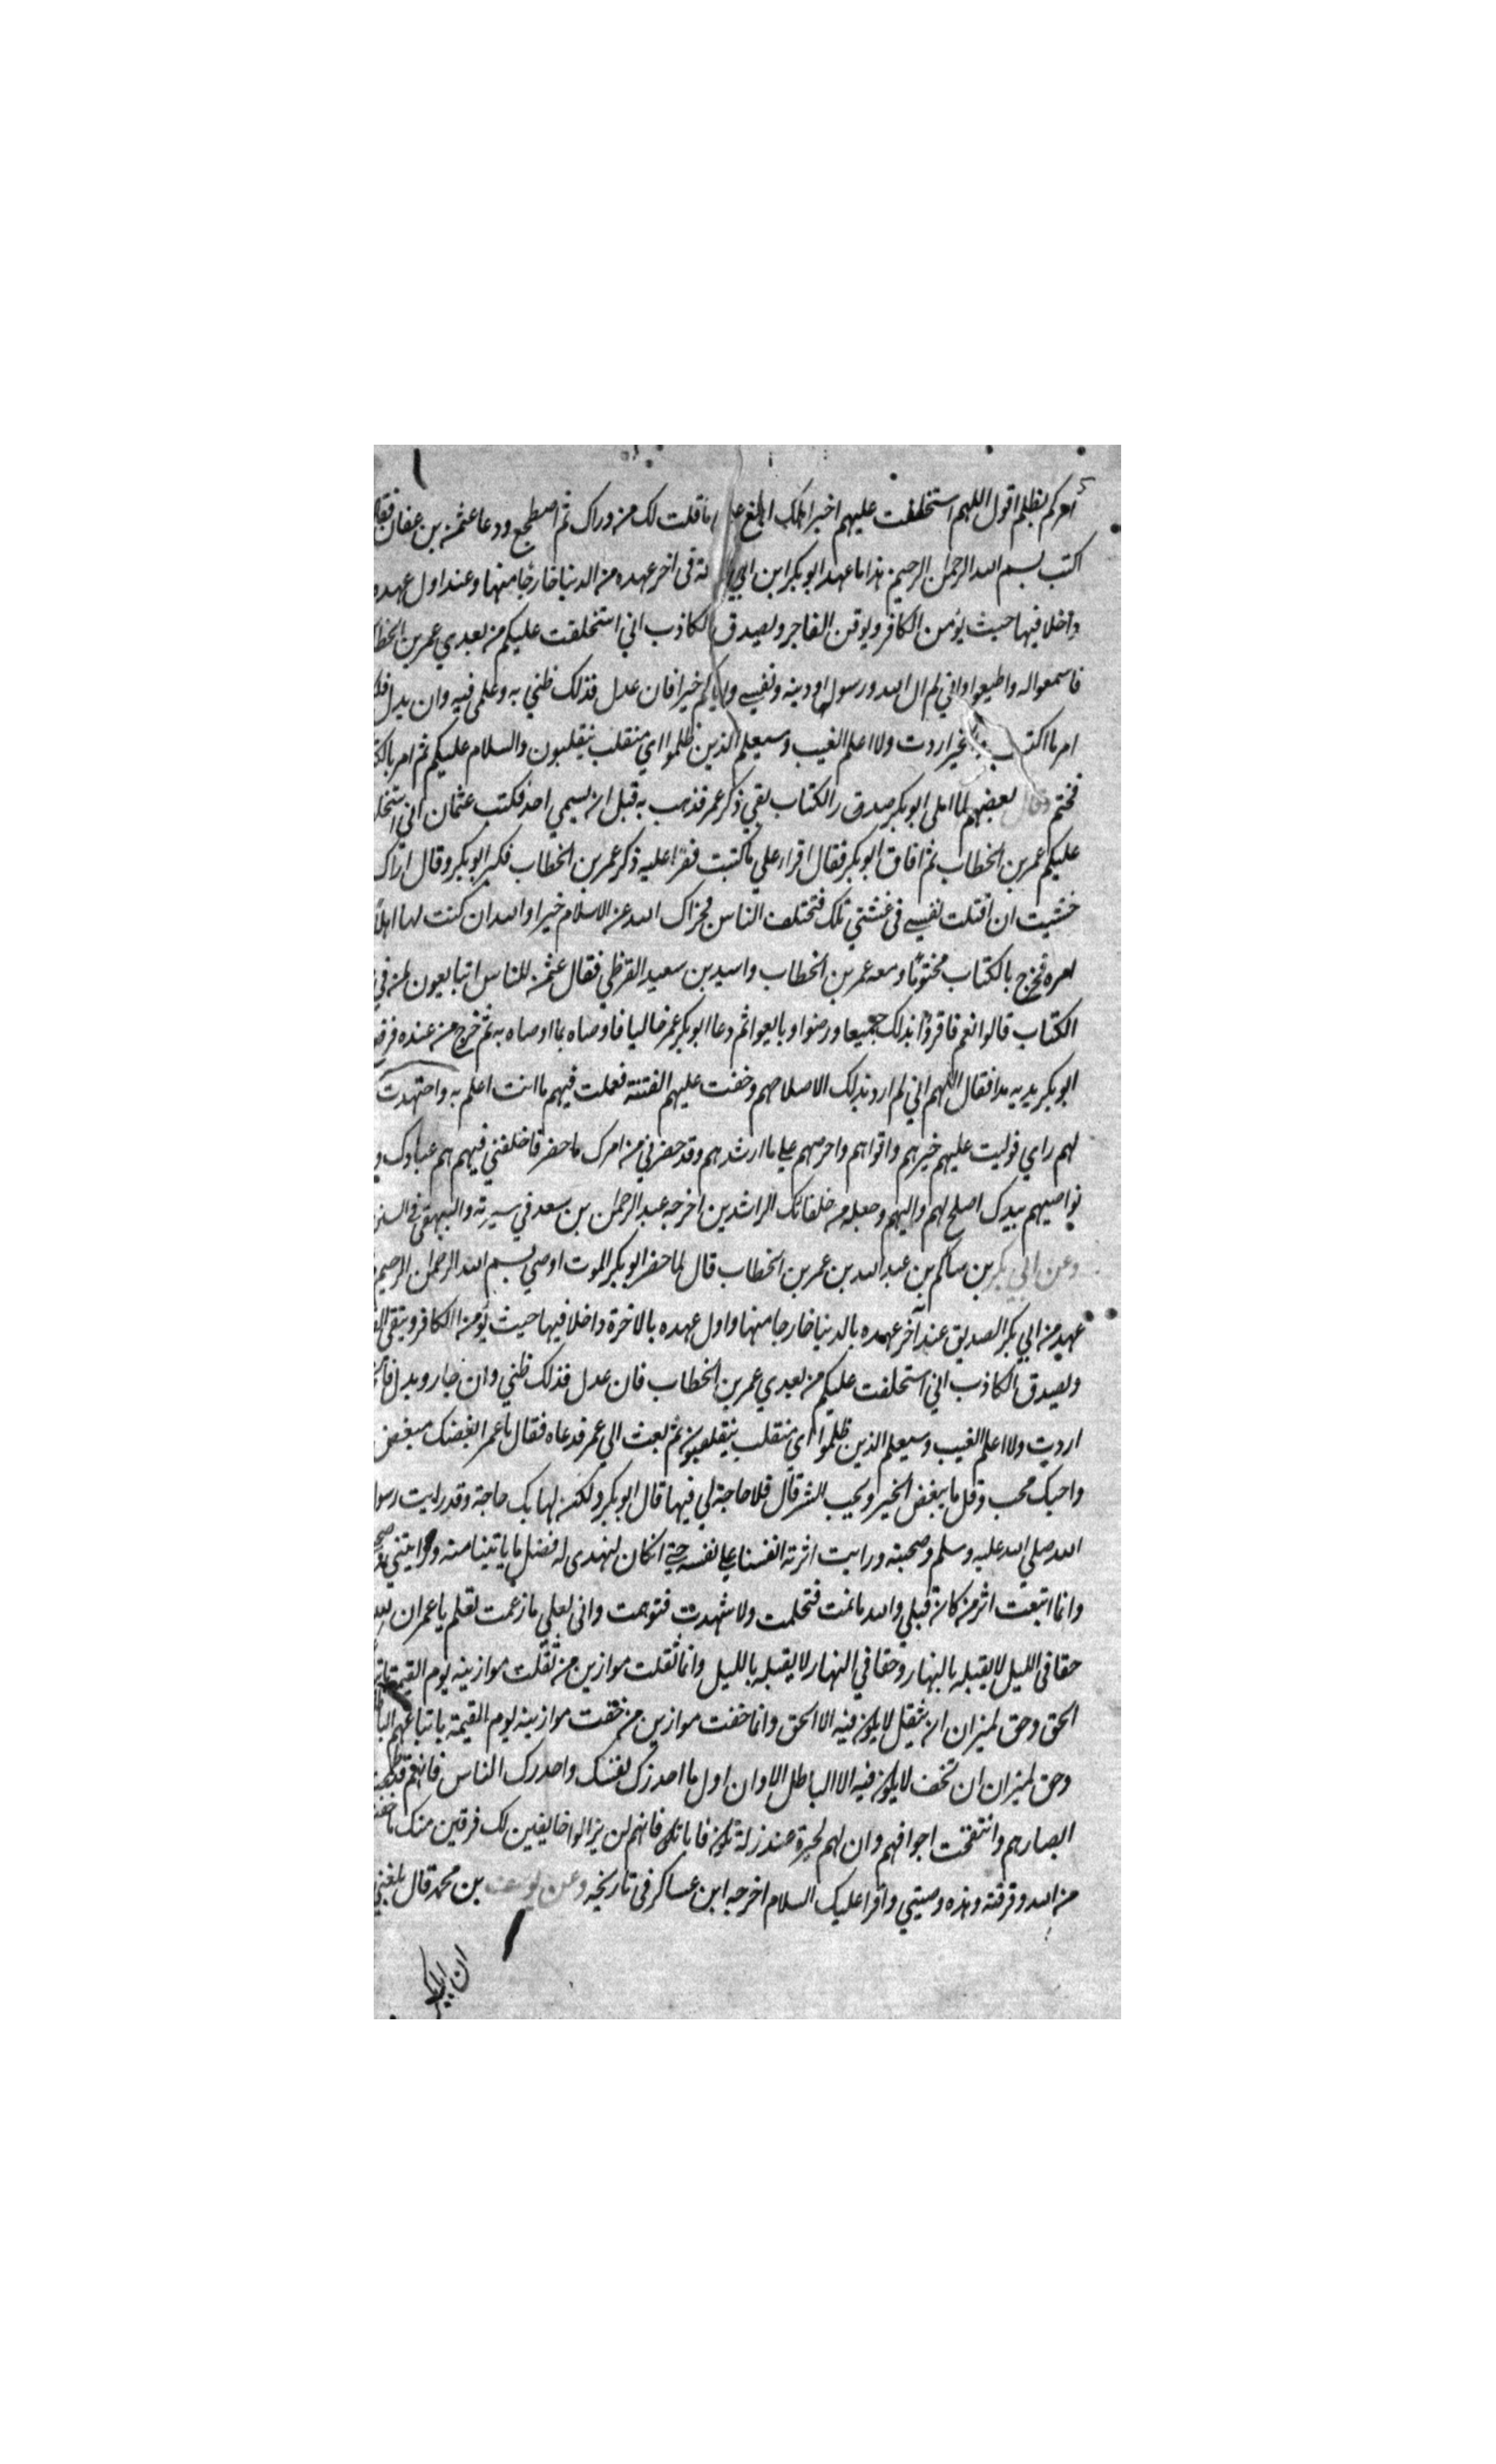 امركم بظلم اقول اللهم استخلفت عليهم خير اهلك ابلغ ما قلت لك من وراك ثم اضطجع ودعا عثمن بن عفان فقا
اكتب بسم الله الرحمن الرحيم هذا ما عهد ابو بكر ابن ابي في اخر عهده من الدنيا خارجا منها وعند اول عهده
داخلا فيها حيث يؤمن الكافر ويوقن الفاجر ويصدق الكاذب اني استخلفت عليكم من بعدي عمر بن الخطا
فاسمعوا له واطيعوا واني لم ال الله ورسوله ودينه ونفسي واياكم خيرا فان عدل فذلك ظني به وعلمي فيه وان بدل فلك
امر ما اكتسب غير اردت ولا اعلم الغيب وسيعلم الذين ظلموا اي منقلب ينقلبون والسلام عليكم ثم امر بالكتا
فختم وقال بعضهم لما املى ابو بكر صدر الكتاب بقي ذكر عمر فذهب به قبل ان يسمي احد فكتب عثمان اني استخلف
عليكم عمر بن الخطاب ثم افاق ابو بكر فقال اقرا علي ما كتبت فقرا عليه ذكر عمر بن الخطاب فكبر ابو بكر وقال اراك
خشيت ان اقتلت نفسي في غشيتي تلك فتختلف الناس فجزاك الله عن الاسلام خيرا والله ان كنت لها اهلا
امره فخرج بالكتاب مختوما ومعه عمر بن الخطاب واسيد بن سعيد القرظي فقال عثمن للناس اتبايعون لمن في
الكتاب قالوا نعم فاقروا بذلك جميعا ورضوا وبايعوا ثم دعا ابو بكر عمر خاليا فاوصاه بما اوصاه به ثم خرج من عنده فرفع
ابو بكر يديه مدا فقال اللهم اني لم ارد بذلك الا صلاحهم وخفت عليهم الفتنة فعملت فيهم ما انت اعلم به واجتهدت
لهم راي فوليت عليهم خيرهم واقواهم واحرصهم على ما ارشدهم وقد حضرني من امرك ما حضر فاخلفني فيهم هم عبادك و
نواصيهم بيدك اصلح لهم واليهم وجعله من خلفائك الراشدين اخرجه عبد الرحمن بن سعد في سيرته والبيهقي في السنن
وعن ابي بكر بن سالم بن عبد الله بن عمر بن الخطاب قال لما حضر ابو بكر الموت اوصي بسم الله الرحمن الرحيم
عهد من ابي بكر الصديق عند اخر عهده بالدنيا خارجا منها واول عهده بالاخرة داخلا فيها حيث يؤمن الكافر ويتقي الف
ويصدق الكاذب اني استخلفت عليكم من بعدي عمر بن الخطاب فان عدل فذلك ظني وان جار وبدل
اردت ولا اعلم الغيب وسيعلم الذين ظلموا اي منقلب ينقلبون ثم بعث الي عمر فدعاه فقال يا عمر ابغضك مبغض
واحبك محب وقل ما يبغض الخير ويحب الشر قال فلا حاجة لي فيها قال ابو بكر ولكن لها بك حاجة وقد رايت رسول
الله صلي الله عليه وسلم وصحبته ورايت اثرته انفسنا على نفسه حتى ان كان لنهدى له فضل ما ياتينا منه ورايتني
وانما اتبعت اثر من كان قبلي والله ما نمت فحلمت ولا شهدت فتوهمت واني لعلي ما زعمت تعلم يا عمر ان لله
حقا في الليل لا يقبله بالنهار وحقا في النهار لا يقبله بالليل وانما ثقلت موازين من ثقلت موازينه يوم القيمة
الحق وحق لميزان ان يثقل لا يكون فيه الا الحق وانما خفت موازين من خفت موازينه يوم القيمة باتباعهم البا
وحق لميزان ان تخف لا يكون فيه الا الباطل الا وان اول ما احذرك نفسك واحذرك الناس فانهم قد طمحت
ابصارهم وانتفخت اجوافهم وان لهم لحيرة عند زلة تكون فاياك فانهم لن يزالوا خايفين لك فرقين منك ما خفت
من الله وفرقته وهذه وصيتي واقرا عليك السلام اخرجه ابن عساكر في تاريخه وعن يوسف بن محمد قال بلغني
ان ابا بكر